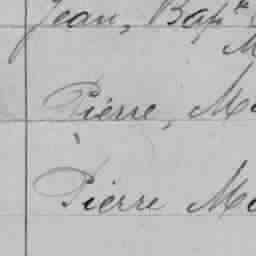 Jean, Bapt
M
Pierre, Ma
Pierre Ma